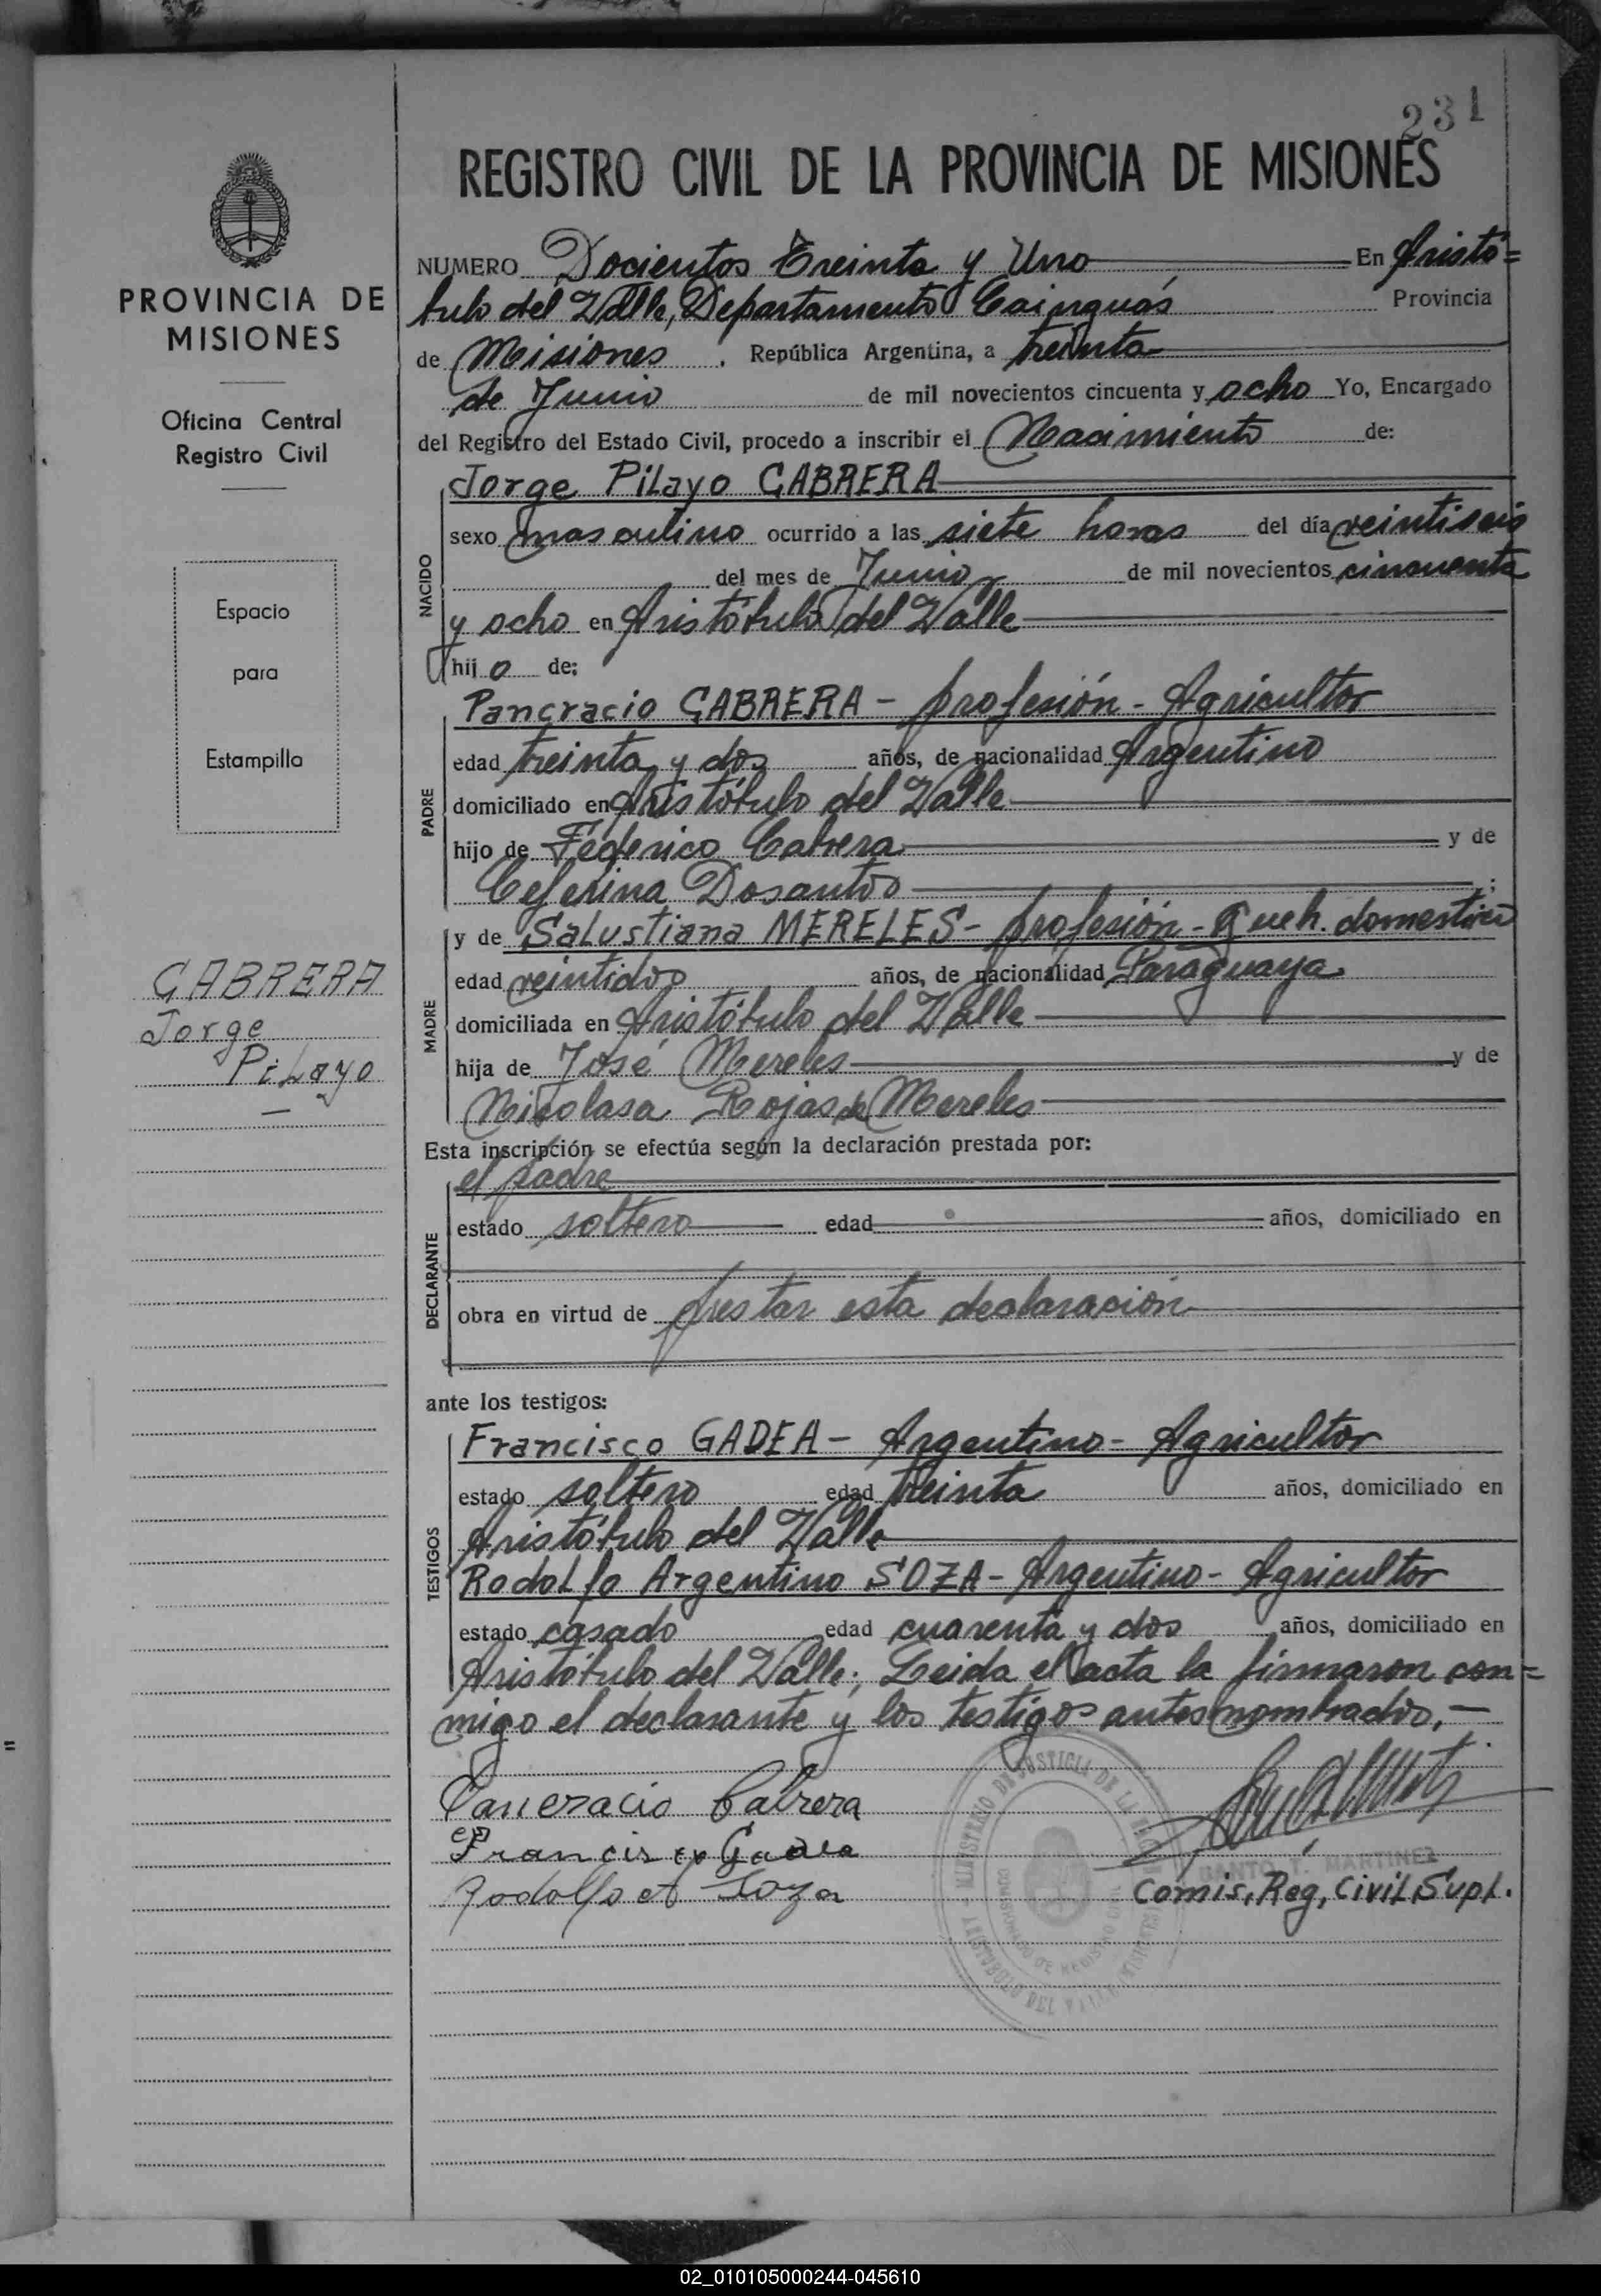 231
REGISTRO CIVIL DE LA PROVINCIA DE MISIONES
PROVINCIA DE
MISIONES
Oficina Central
Registro Civil
Espacio
para
Estampilla
CABRERA
Jorge
Pilayo
NUMERO Docientos Treinta y Uno En Aristó=
tulo del Valle, Departamento Cainguás Provincia
de Misiones . República Argentina, a treinta
de Junio de mil novecientos cincuenta y ocho Yo, Encargado
del Registro del Estado Civil, procedo a inscribir el Nacimiento de:
NACIDO
Jorge Pilayo CABRERA
sexo masculino ocurrido a las siete horas del día veintiseis
del mes de Junio de mil novecientos cincuenta
y ocho en Aristótulo del Valle
hijo de:
PADRE
Pancracio CABRERA - profesión - Agricultor
edad treinta y dos años, de nacionalidad Argentino
domiciliado en Aristótulo del Valle
hijo de Federico Cabrera y de
Ceferina Dosantos ;
MADRE
y de Salustiana MERELES - profesión - Queh. domestico
edad veintidos años, de nacionalidad Paraguaya
domiciliada en Aristótulo del Valle
hija de José Mereles y de
Nicolasa Rojas de Mereles
Esta inscripción se efectúa según la declaración prestada por:
DECLARANTE
el padre
estado soltero edad años, domiciliado en
obra en virtud de prestar esta declaración
ante los testigos:
TESTIGOS
Francisco GADEA - Argentino - Agricultor
estado soltero edad treinta años, domiciliado en
Aristótulo del Valle
Rodolfo Argentino SOZA - Argentino - Agricultor
estado casado edad cuarenta y dos años, domiciliado en
Aristótulo del Valle; Leida el acta la firmaron con=
migo el declarante y los testigos antes nombrados.-
Pancracio Cabrera
Francisco Gadea
Rodolfo A Soza
SANTO T. MARTINEZ
Comis, Reg, Civil Supl.
02_010105000244-045610